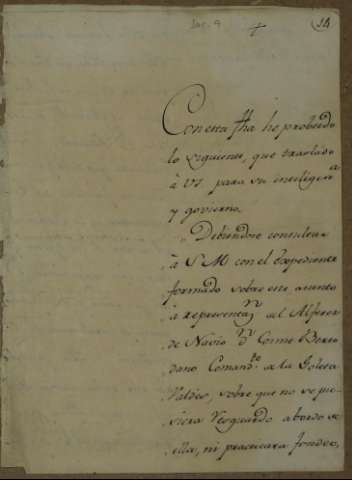 14
Con esta fha he probeido
lo siguiente, que traslado
à VS. para su inteligen.a
y govierno.
„ Debiendose consultar
à S M con el Expediente
formado sobre este asunto
à representaz.n del Alferez
de Navio D.n Cosme Bert
dano Comand.te de la Goleta
Valdes, sobre que no se pu-
siera Resguardo abordo de
ella, ni practicara fondeo,